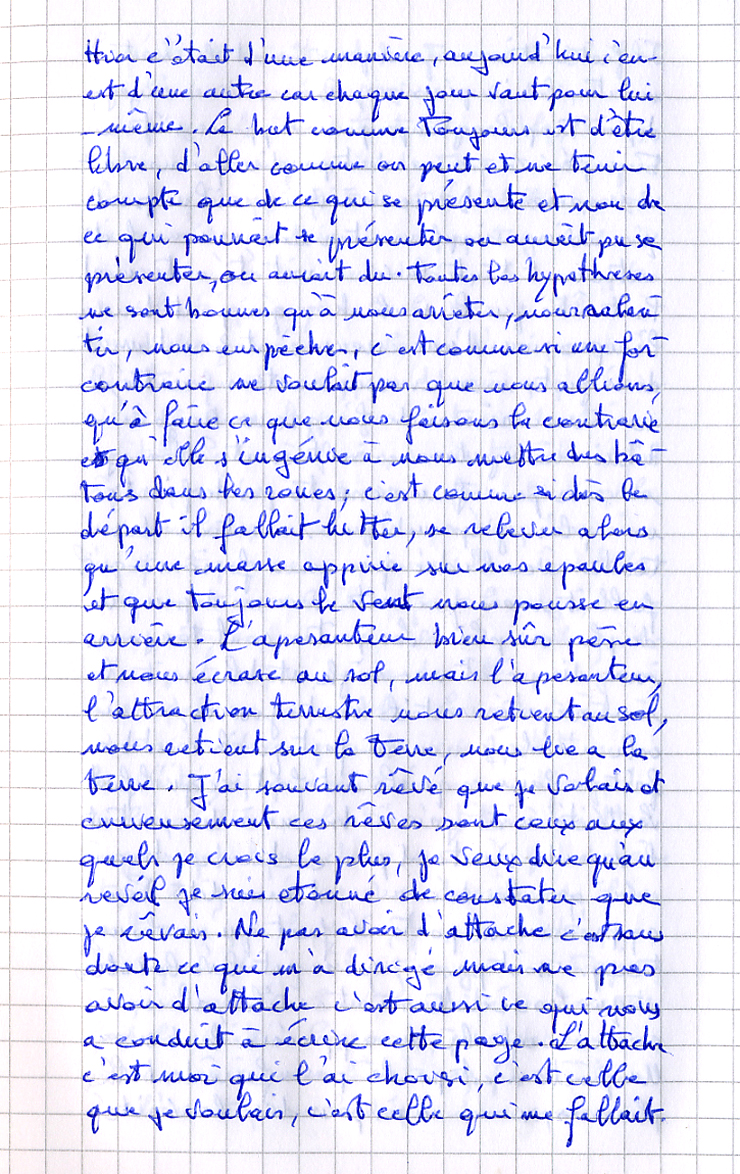 Hier c'était d'une manière, aujourd'hui c'en
est d'une autre car chaque jour vaut pour lui
-même. Le but comme toujours est d'être
libre, d'aller comme on peut et ne tenir
compte que de ce qui se présente et non de
ce qui pourrait se présenter ou aurait pu se
présenter, ou aurait du. Toutes les hypothèses
ne sont bonnes qu'à nous arrêter, nous ralen
tir, nous empêcher, c'est comme si une for
contraire ne voulait pas que nous allions,
qu'à faire ce que nous faisons le contrarie
et qu'elle s'ingénie à nous mettre des bâ-
tons dans les roues ; c'est comme si dès le
départ il fallait lutter, se relever alors
qu'une masse appuie sur nos epaules
et que toujours le vent nous pousse en
arrière. L'apesanteur bien sûr pèse
et nous écrase au sol, mais l'apesanteur,
l'attraction terrestre nous retient au sol,
nous retient sur la terre, nous lie a la
terre. J'ai souvent rêvé que je volais et
curieusement ces rêves sont ceux aux
quels je crois le plus, je veux dire qu'au
réveil je suis etonné de constater que
je rêvais. Ne pas avoir d'attache c'est sans
doute ce qui m'a dirigé mais ne pas
avoir d'attache c'est aussi ce qui nous
a conduit à écrire cette page. L'attache
c'est moi qui l'ai choisi, c'est celle
que je voulais, c'est celle qui me fallait.